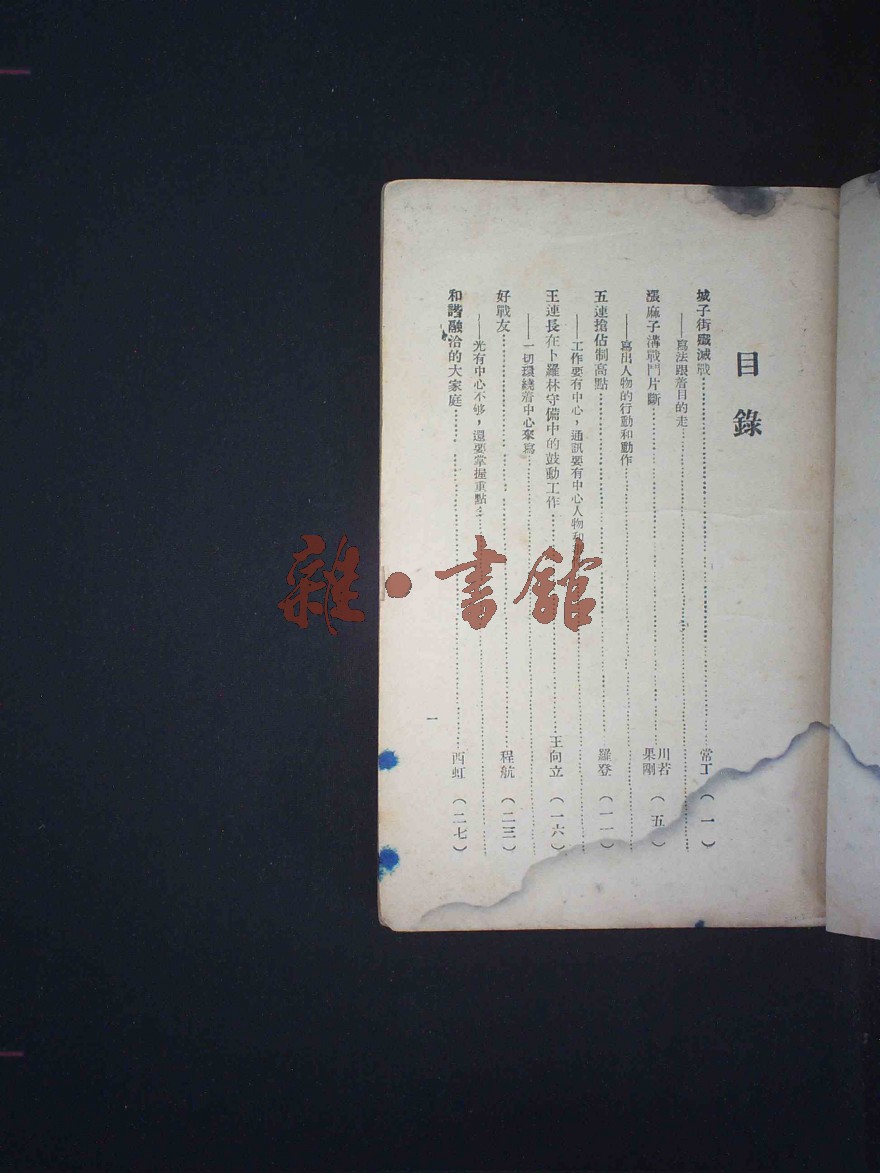 目錄
城子街殲滅戰……常丁(一)
——寫法跟着目的走……
張麻子溝戰鬥片斷……川若 果剛(五)
——寫出人物的行動和動作……
五連搶佔制高點……羅登(一一)
——工作要有中心，通訊要有中心人物和……
王連長在卜羅林守備中的鼓動工作……王向立(一六)
——一切環繞着中心來寫……
好戰友……程航(二三)
——光有中心不够，還要掌握重點……
和諧融洽的大家庭……西虹(二七)
一
雜·書館